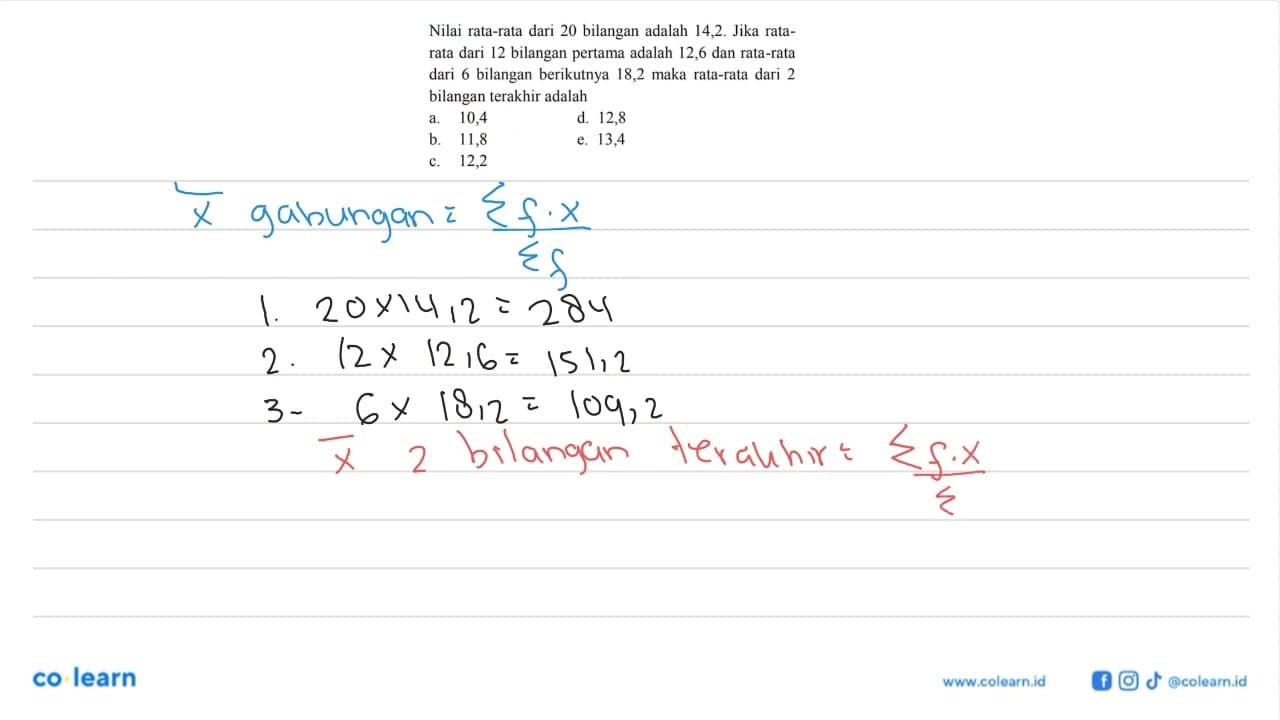 Nilai rata-rata dari 20 bilangan adalah 14,2. Jika rata-
rata dari 12 bilangan pertama adalah 12,6 dan rata-rata
dari 6 bilangan berikutnya 18,2 maka rata-rata dari 2
bilangan terakhir adalah
a. 10,4 d. 12,8
b. 11,8 e. 13,4
c. 12,2
x̄ gabungan = Σf.x
Σf
1. 20x14,2 = 284
2. 12x 12,6 = 151,2
3- 6x 18,2 = 109,2
x̄ 2 bilangan terakhir = Σf.x
Σ
co learn
www.colearn.id @colearn.id